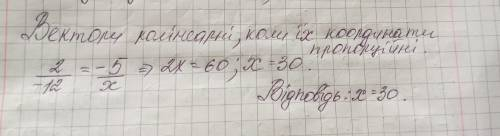 Вектори колінеарні, коли їх координати
пропорційні.
2/-12 = -5/x ⇒ 2x = 60; x = 30.
Відповідь: x = 30.